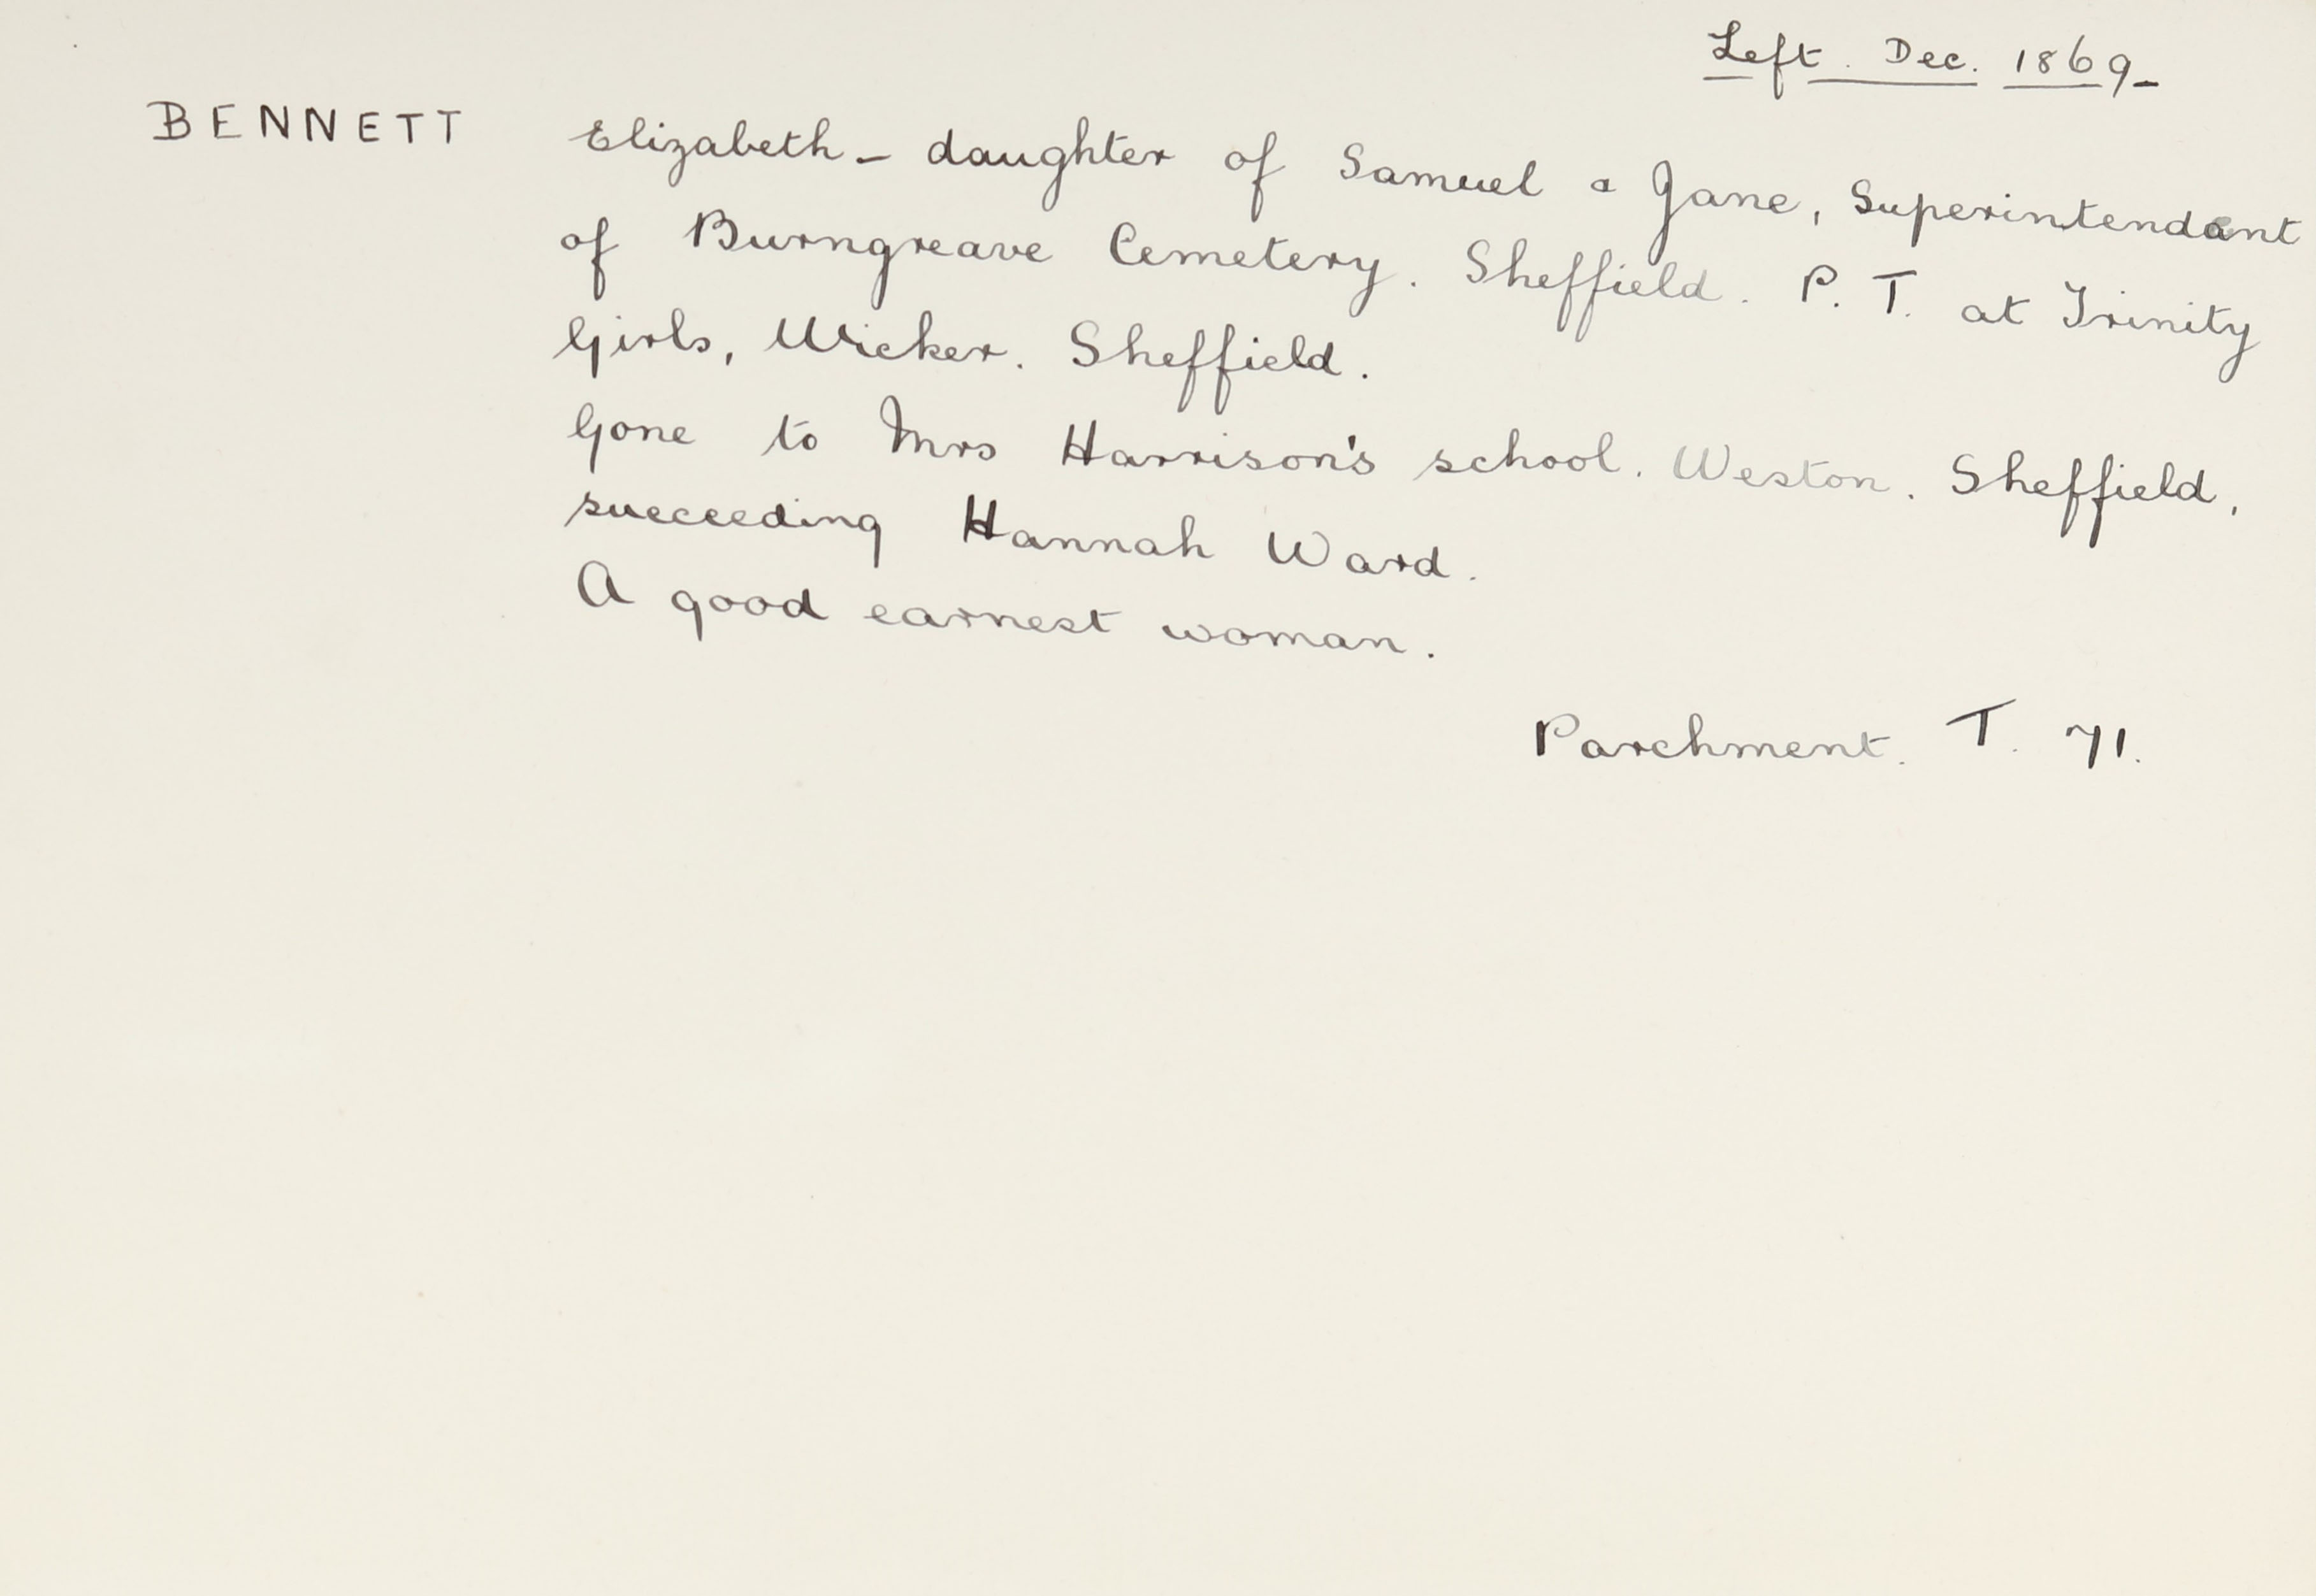 Left. Dec. 1869-
BENNETT Elizabeth - daughter of Samuel & Jane, Superintendant
of Burngreave Cemetery. Sheffield. P. T. at Trinity
Girls, Wicker. Sheffield.
Gone to Mrs Harrison's school. Weston. Sheffield,
succeeding Hannah Ward.
A good earnest woman.
Parchment. T. 71.